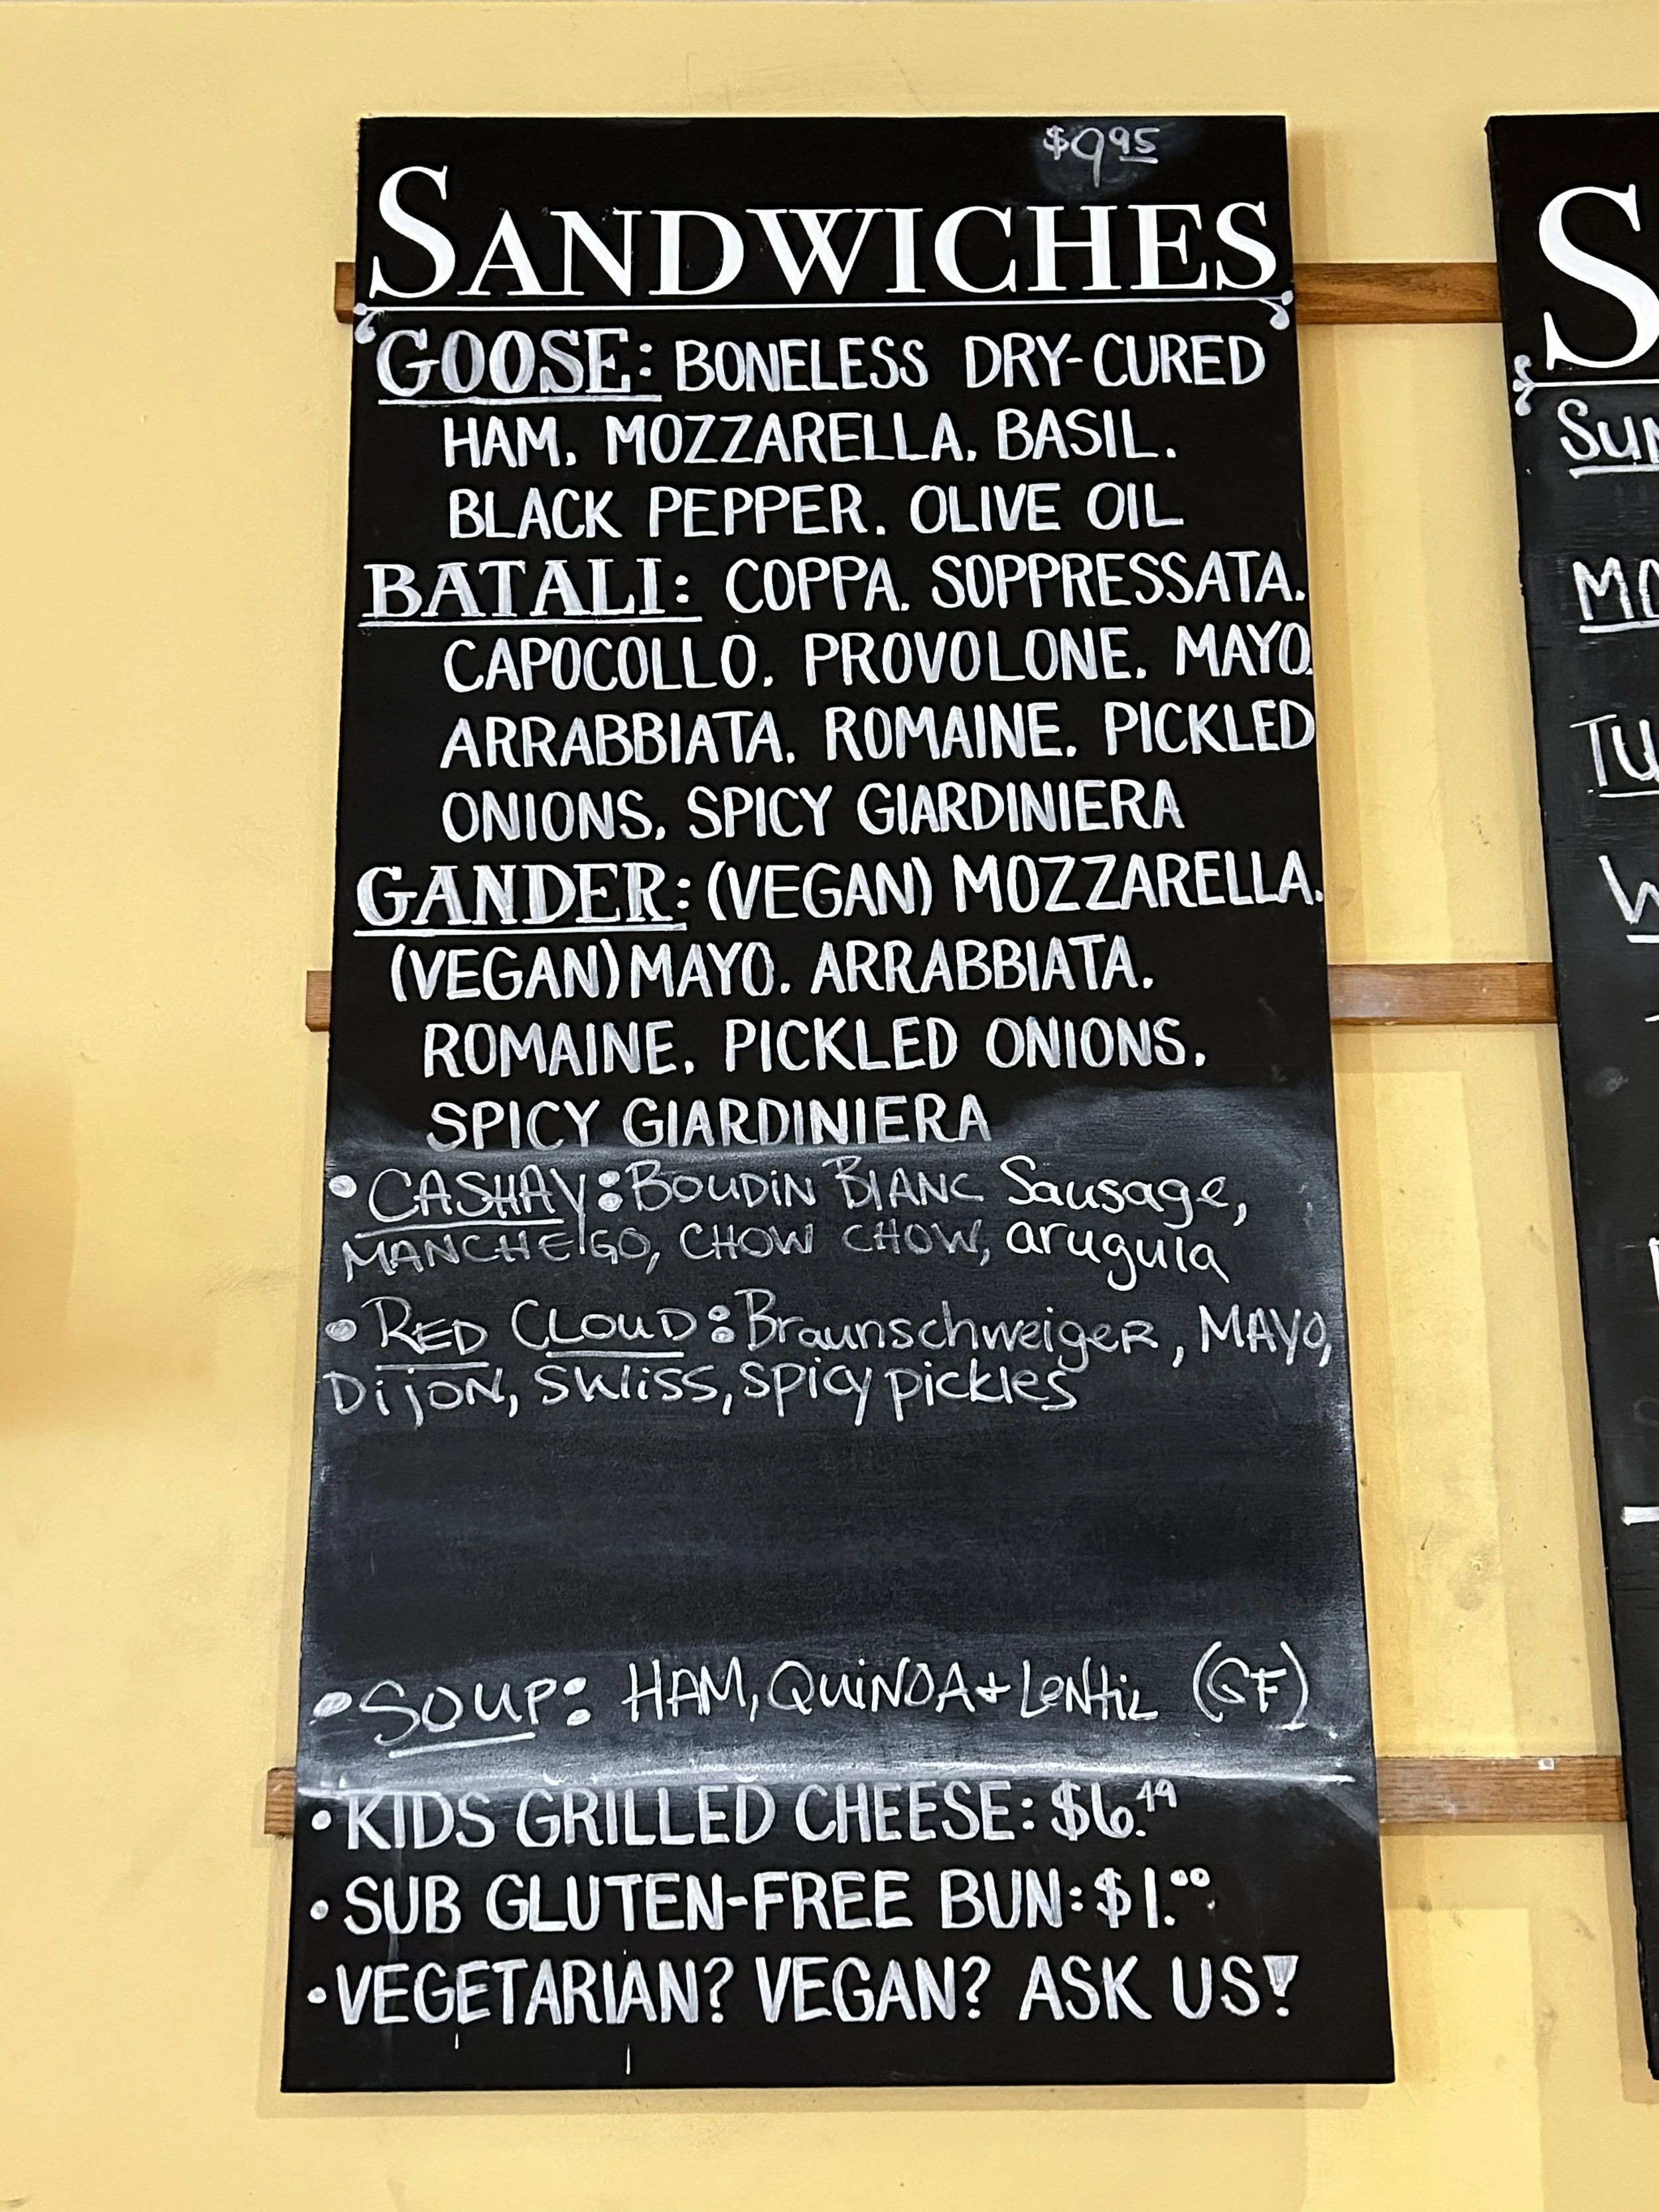 $9.95
SANDWICHES
GOOSE: BONELESS DRY-CURED
HAM, MOZZARELLA, BASIL,
BLACK PEPPER, OLIVE OIL
BATALI: COPPA, SOPPRESSATA,
CAPOCOLLO, PROVOLONE, MAYO,
ARRABBIATA, ROMAINE, PICKLED
ONIONS, SPICY GIARDINIERA
GANDER: (VEGAN) MOZZARELLA,
(VEGAN) MAYO, ARRABBIATA,
ROMAINE, PICKLED ONIONS,
SPICY GIARDINIERA
• CASHAY: BOUDIN BLANC Sausage,
MANCHEGO, CHOW CHOW, arugula
• RED CLOUD: BraunschweigeR, MAYO,
DijON, SWiSS, spicy pickles
• SOUP: HAM, QUiNOA + LeNtiL (GF)
• KIDS GRILLED CHEESE: $6.49
• SUB GLUTEN-FREE BUN: $1.00
• VEGETARIAN? VEGAN? ASK US!
S
SUN
MO
TU
W